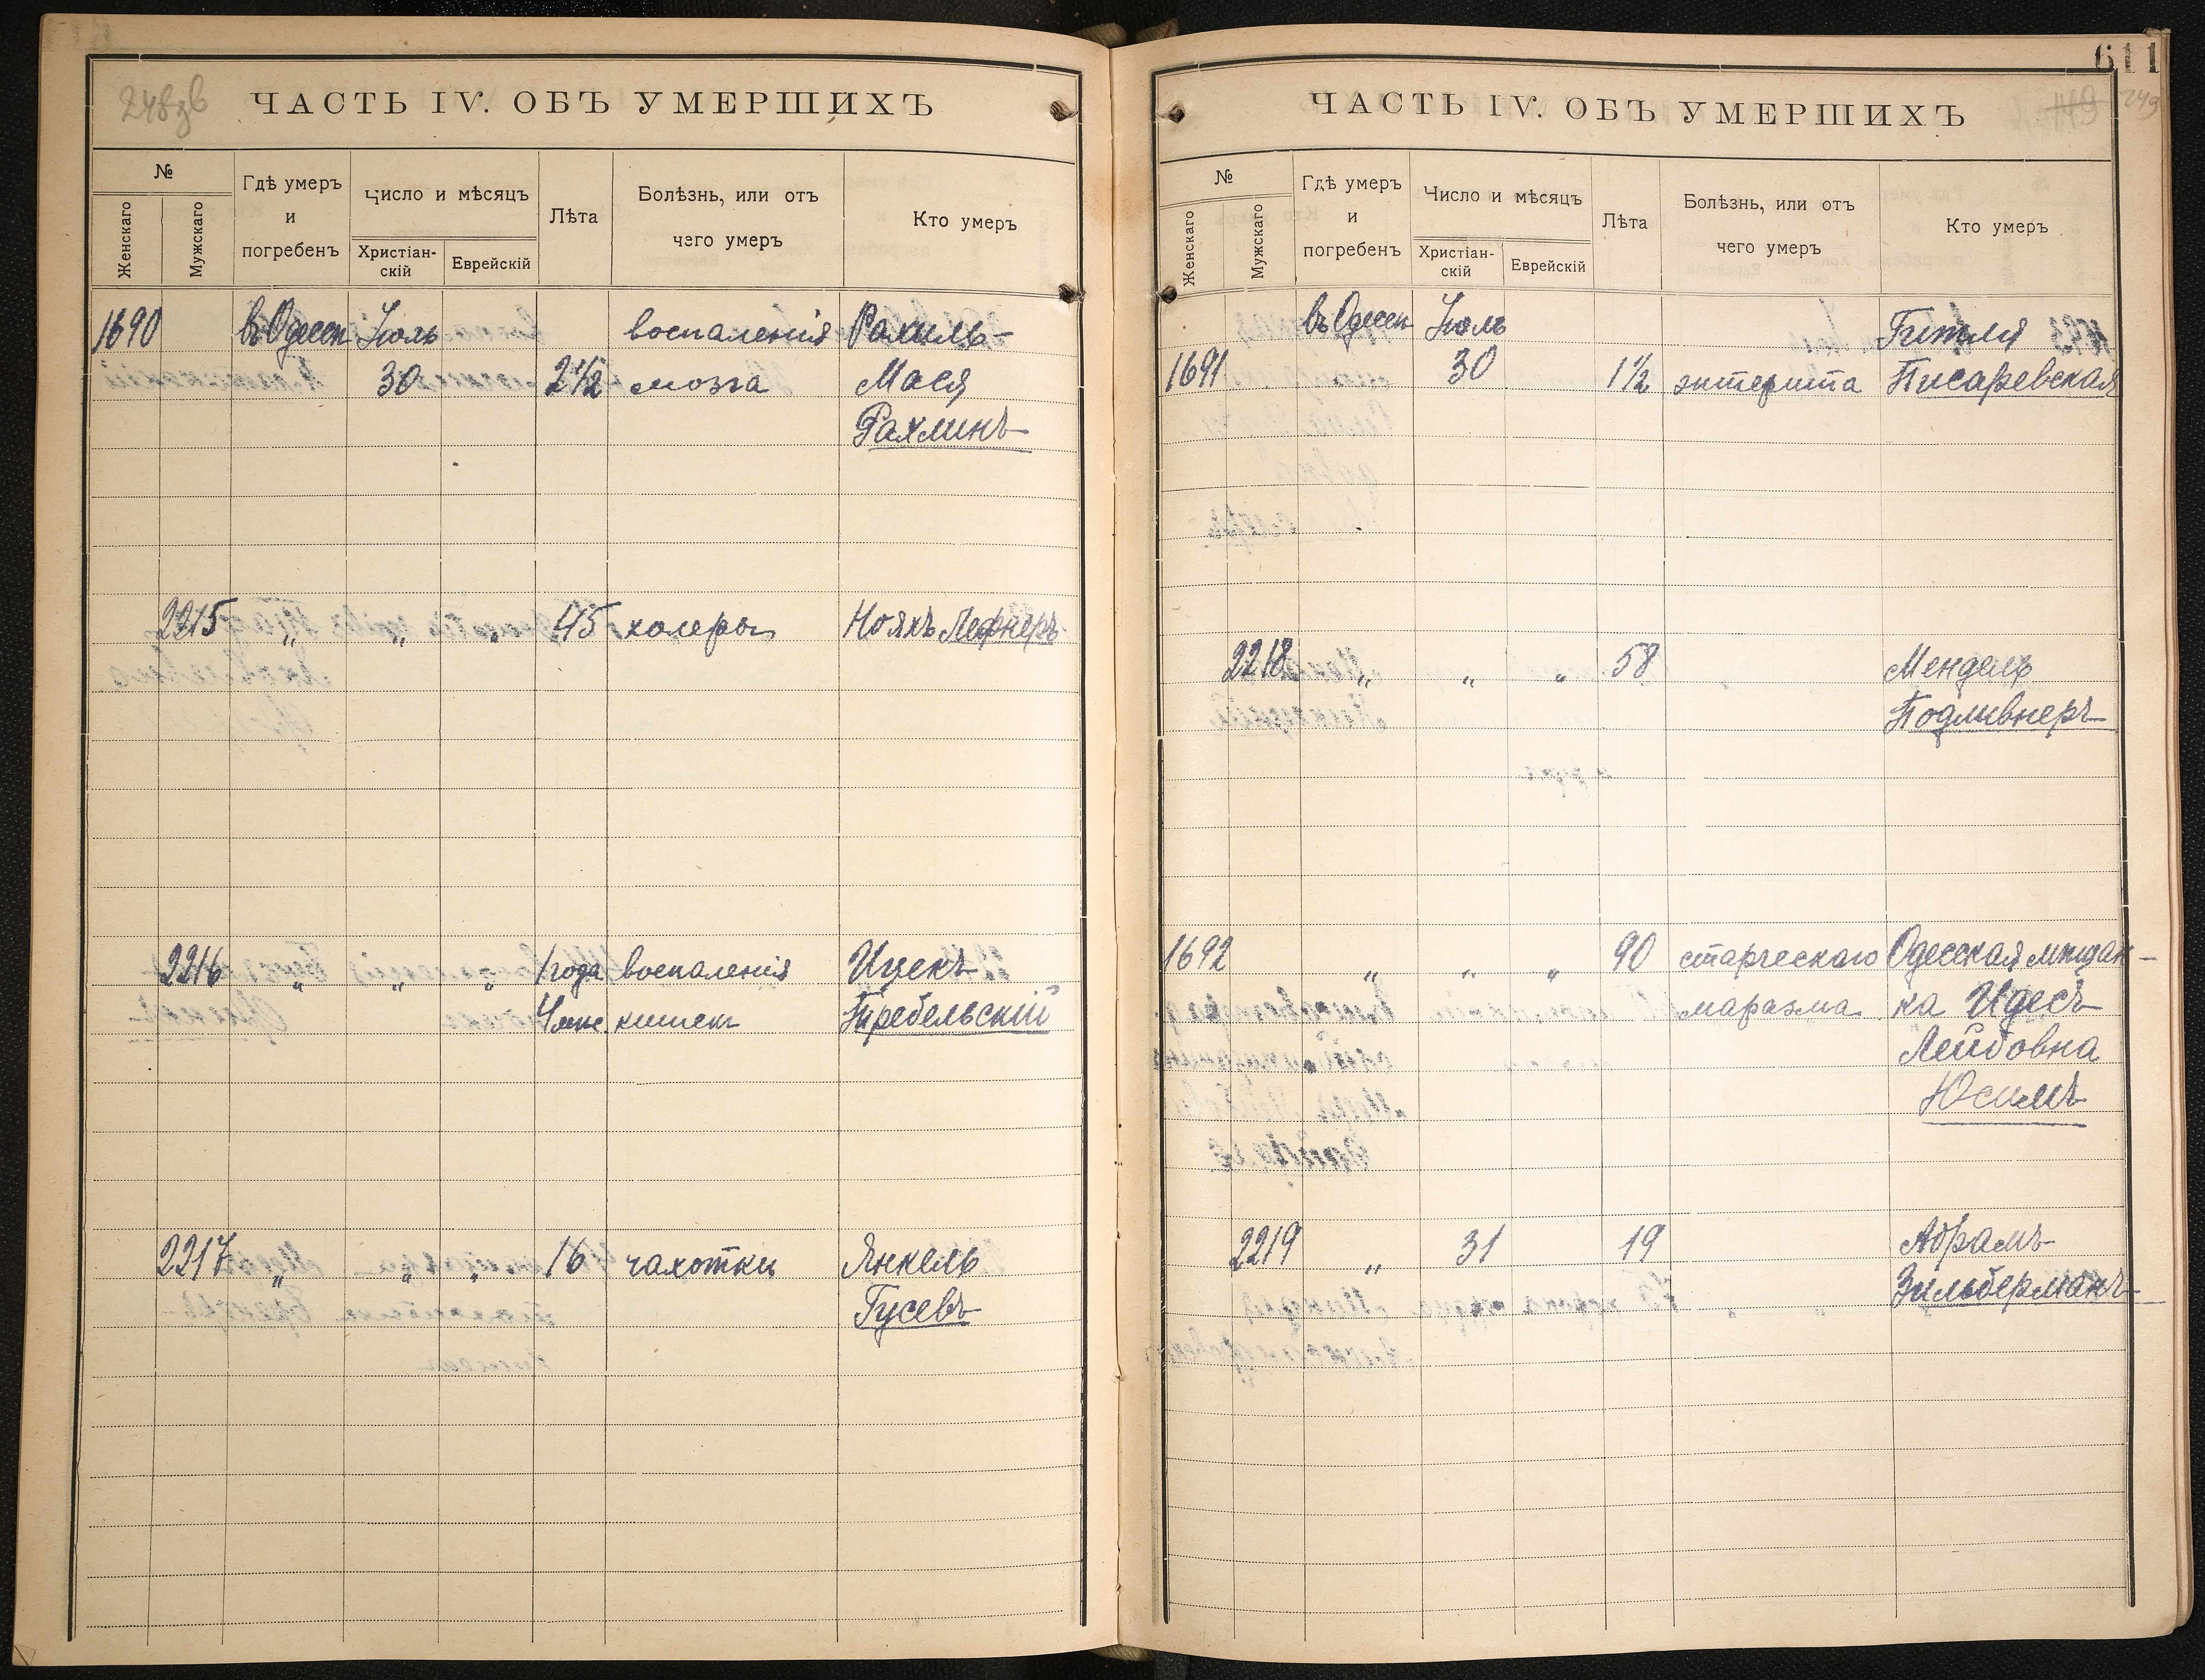 248зв
ЧАСТЬ IV. ОБЪ УМЕРШИХЪ
№
Женскаго
Мужскаго
Гдѣ умеръ
и
погребенъ
Число и мѣсяцъ
Христіан-
скій
Еврейскій
Лѣта
Болѣзнь, или отъ
чего умеръ
Кто умеръ
1690 въ Одессѣ Іюль воспаленія Рахиль-
30 2½ мозга Мася
Рахлинъ
2215 „ „ „ 45 холеры Нояхъ Лефнеръ
2216 „ „ „ 1 года воспаленія Ицекъ
4 мѣс. кишекъ Требельскій
2217 „ „ „ 16 чахотки Янкель
Гусевъ
611
249
ЧАСТЬ IV. ОБЪ УМЕРШИХЪ
№
Женскаго
Мужскаго
Гдѣ умеръ
и
погребенъ
Число и мѣсяцъ
Христіан-
скій
Еврейскій
Лѣта
Болѣзнь, или отъ
чего умеръ
Кто умеръ
въ Одессѣ Іюль Гитля
1691 30 1½ энтерита Писаревская
2218 „ „ „ 58 Мендель
Подливнеръ
1692 „ „ „ 90 старческаго Одесская мѣщан-
маразма ка Идесъ
Лейбовна
Юсимъ
2219 „ 31 19 Абрамъ
Зильберманъ